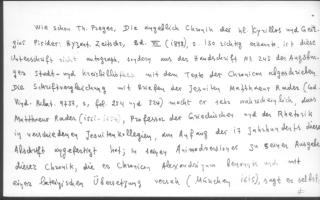 Wie schon Th. Preger, Die angebliche Chronik des hl. Kyrillos und Geor-
gius Pisides: Byzant. Zeitschr., Bd. VII (1898), s. 130 richtig erkannte, ist diese
Unterschrift nicht autograph, sondern aus der Handschrift No 243 der Augsbur-
ger Stadt- und Kreisbibliothek mit dem Texte der Chronicon abgeschrieben.
Die Schriftvergleichung mit Briefen des Jesuiten Matthaeus Rader (Cod.
Vind. Palat. 9737, s, fol. 224 und 220) macht es sehr wahrscheinlich, dass
Matthaeus Rader (1561-1634), Professor der Griechischen und der Rhetorik
in verschiedenen Jesuitenkollegien, am Anfang des 17 Jahrhunderts diese
Abschrift angefertigt hat; in seinen Animadversiones zu seiner Ausgabe
dieser Chronik, die er Chronicon Alexandrinum benennt und mit
einer lateinischen Übersetzung versah (München 1615), sagt er selbst,